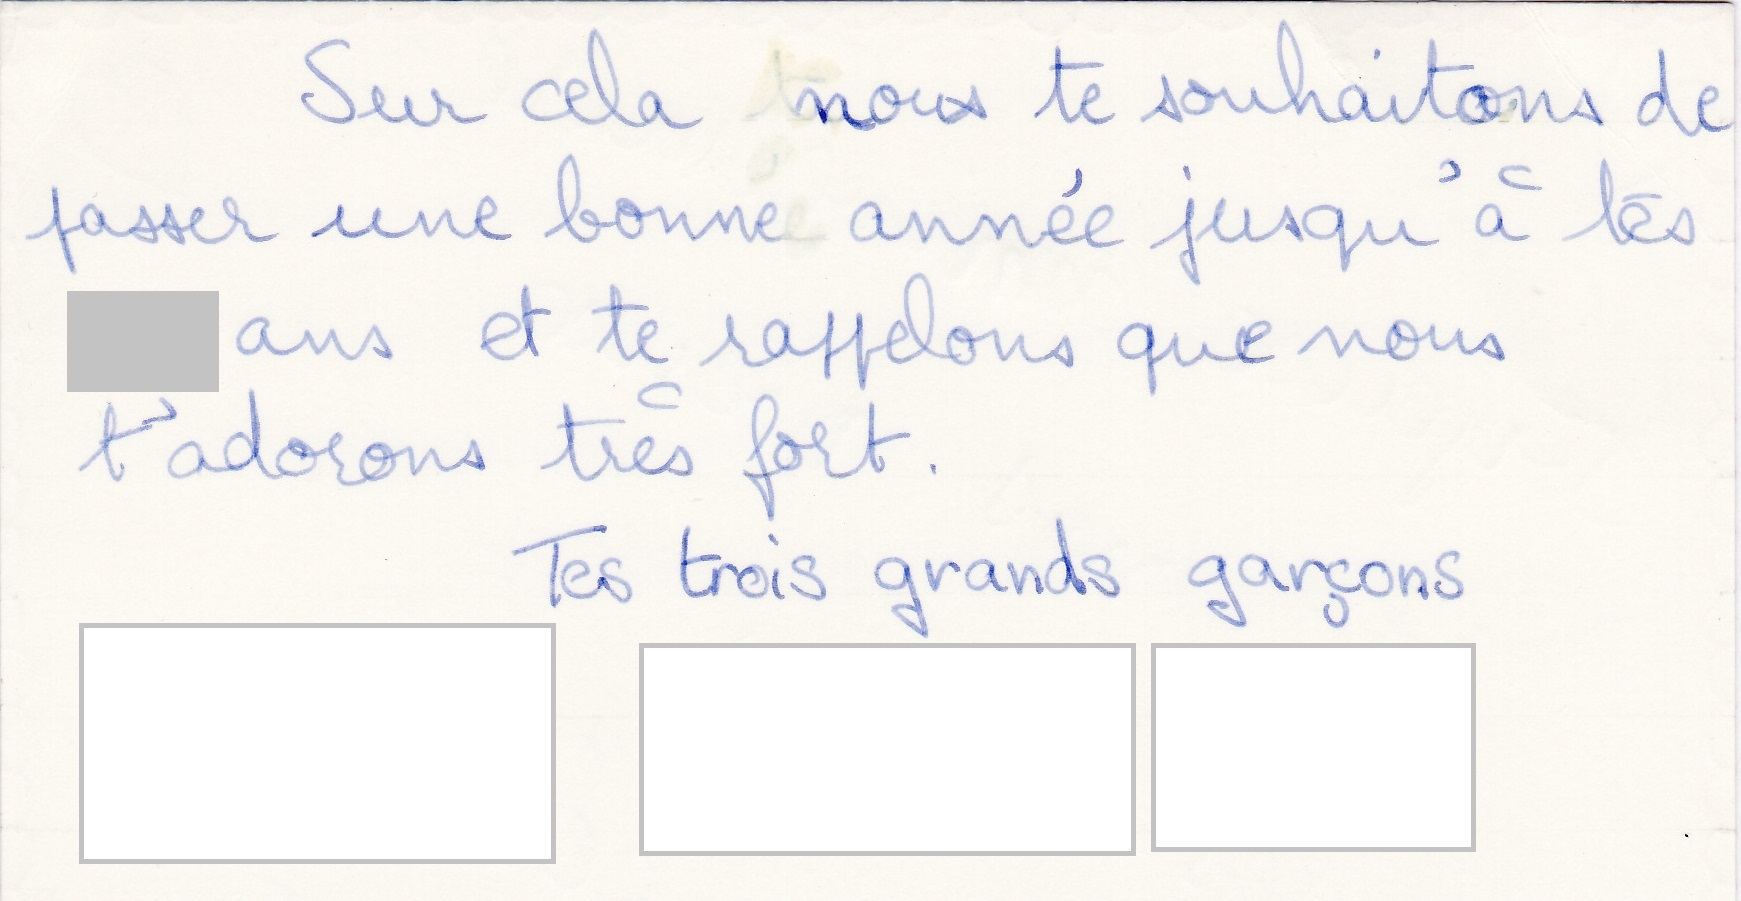 Sur cela nous te souhaitons de
passer une bonne année jusqu'à tes
ans et te rappelons que nous
t'adorons très fort.
Tes trois grands garçons